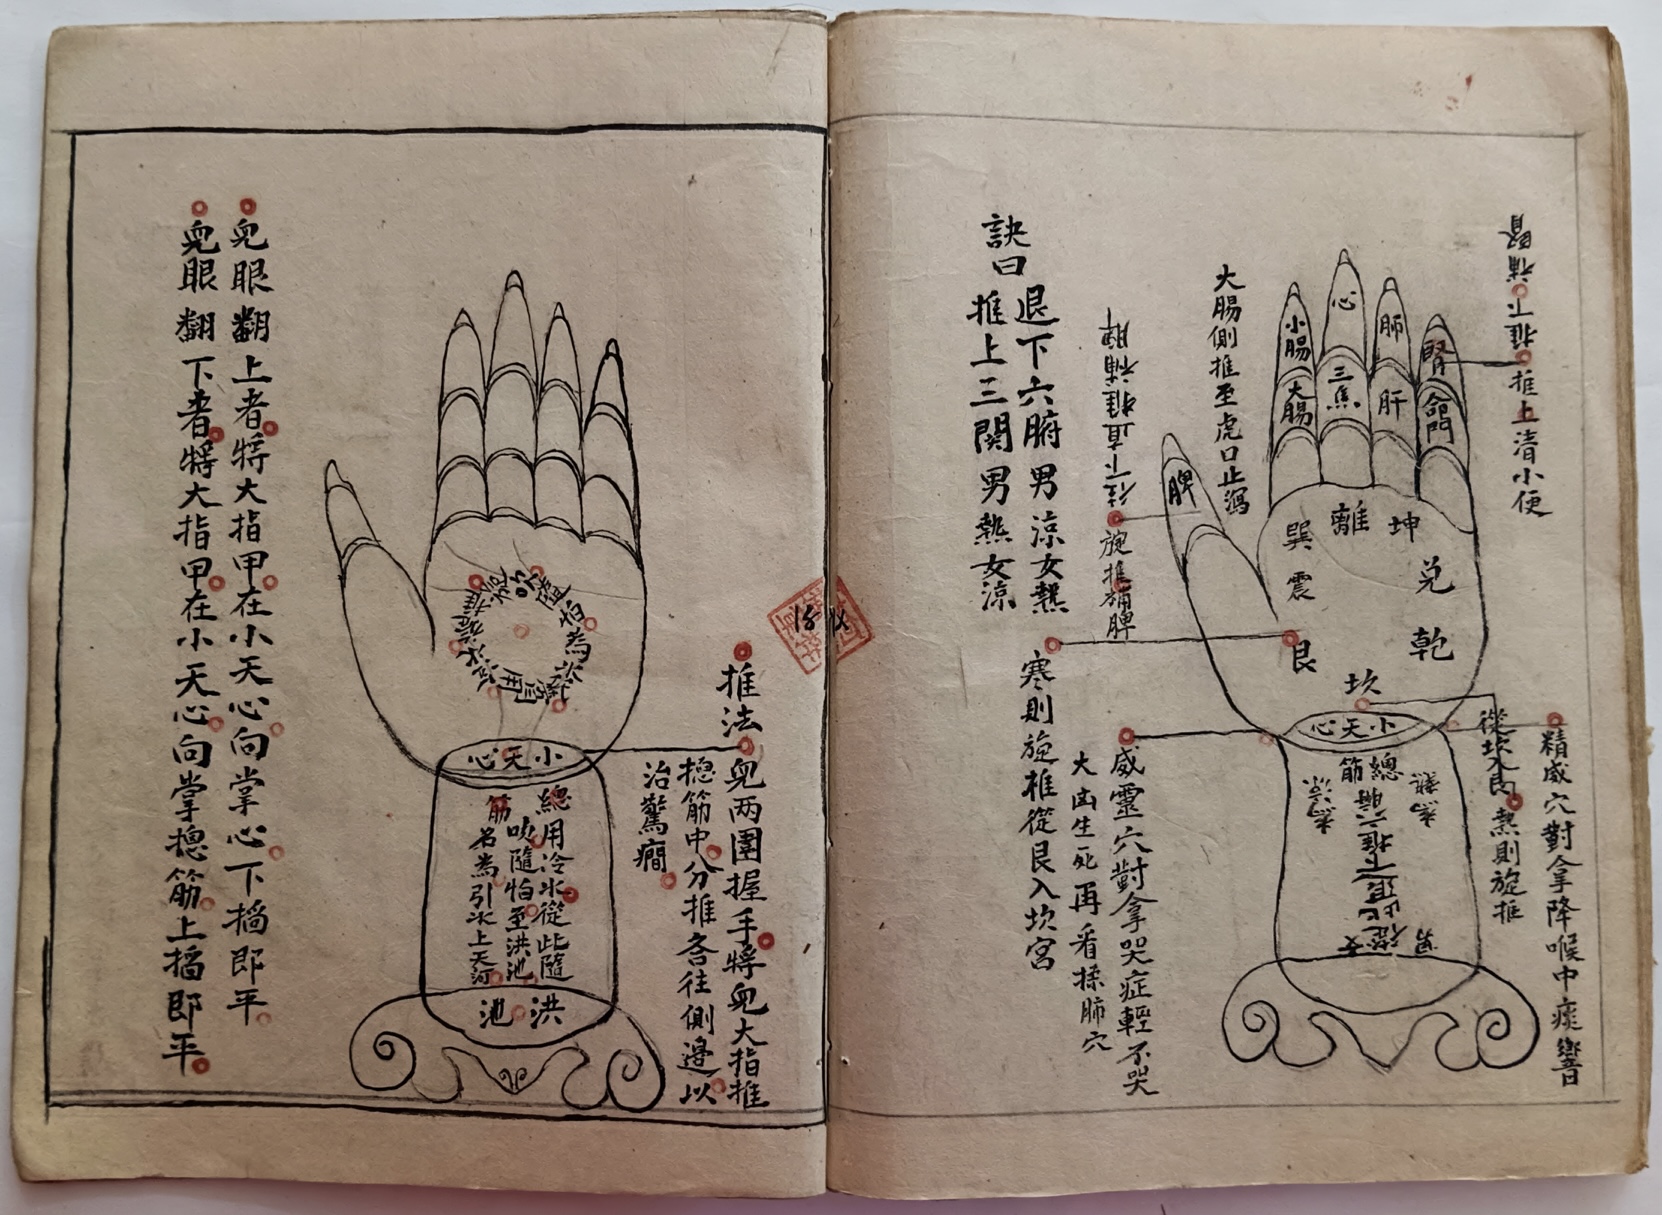 腎補下推
推上清小便
精威穴對拿降喉中痰響
從坎入艮
熱則旋推
腎
命門
肺
肝
心
三焦
小腸
大腸
脾
巽
離
坤
兌
震
乾
艮
坎
小天心
總筋
大腸側推至虎口止瀉
往下直推補脾
旋推補脾
威靈穴對拿哭症輕不哭
大凶生死再看揉肺穴
寒則旋推從艮入坎宮
訣曰
退下六腑男涼女熱
推上三關男熱女涼
推法
兒两圍握手將兒大指推
摠筋中分推各往側邊以
治驚癇
小天心
總筋
用冷水從此隨
吹隨怕至洪池
名為引水上天河
洪池
兒眼翻上者將大指甲在小天心向掌心下搯即平
兒眼翻下者將大指甲在小天心向掌摠筋上搯即平